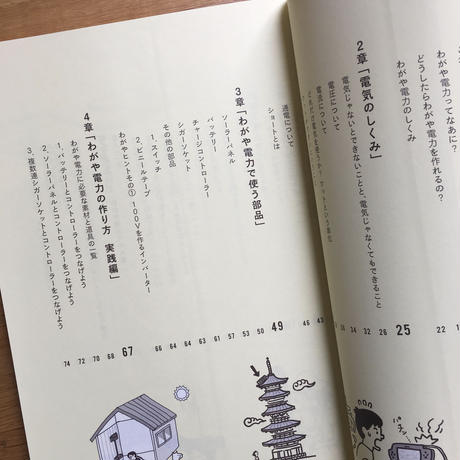 わがや電力ってなあに?
どうしたらわがや電力を作れるの?
わがや電力のしくみ 22
2章「電気のしくみ」 25
電気じゃないとできないことと、電気じゃなくてもできること 26
電圧について 32
電流について 34
どれだけ電気を使うか? ワットという単位
通電について
ショートとは 46
3章「わがや電力で使う部品」 49
ソーラーパネル 50
チャージコントローラー 53
バッテリー 57
シガーソケット 58
その他の部品 60
1. スイッチ 61
2. ビニールテープ 64
わがやヒントその① 100Vを作るインバーター 66
4章「わがや電力の作り方 実践編」 67
わがや電力に必要な素材と道具の一覧 68
1. バッテリーとコントローラーをつなげよう 70
2. ソーラーパネルとコントローラーをつなげよう 72
3. 複数連シガーソケットとコントローラーをつなげよう 74